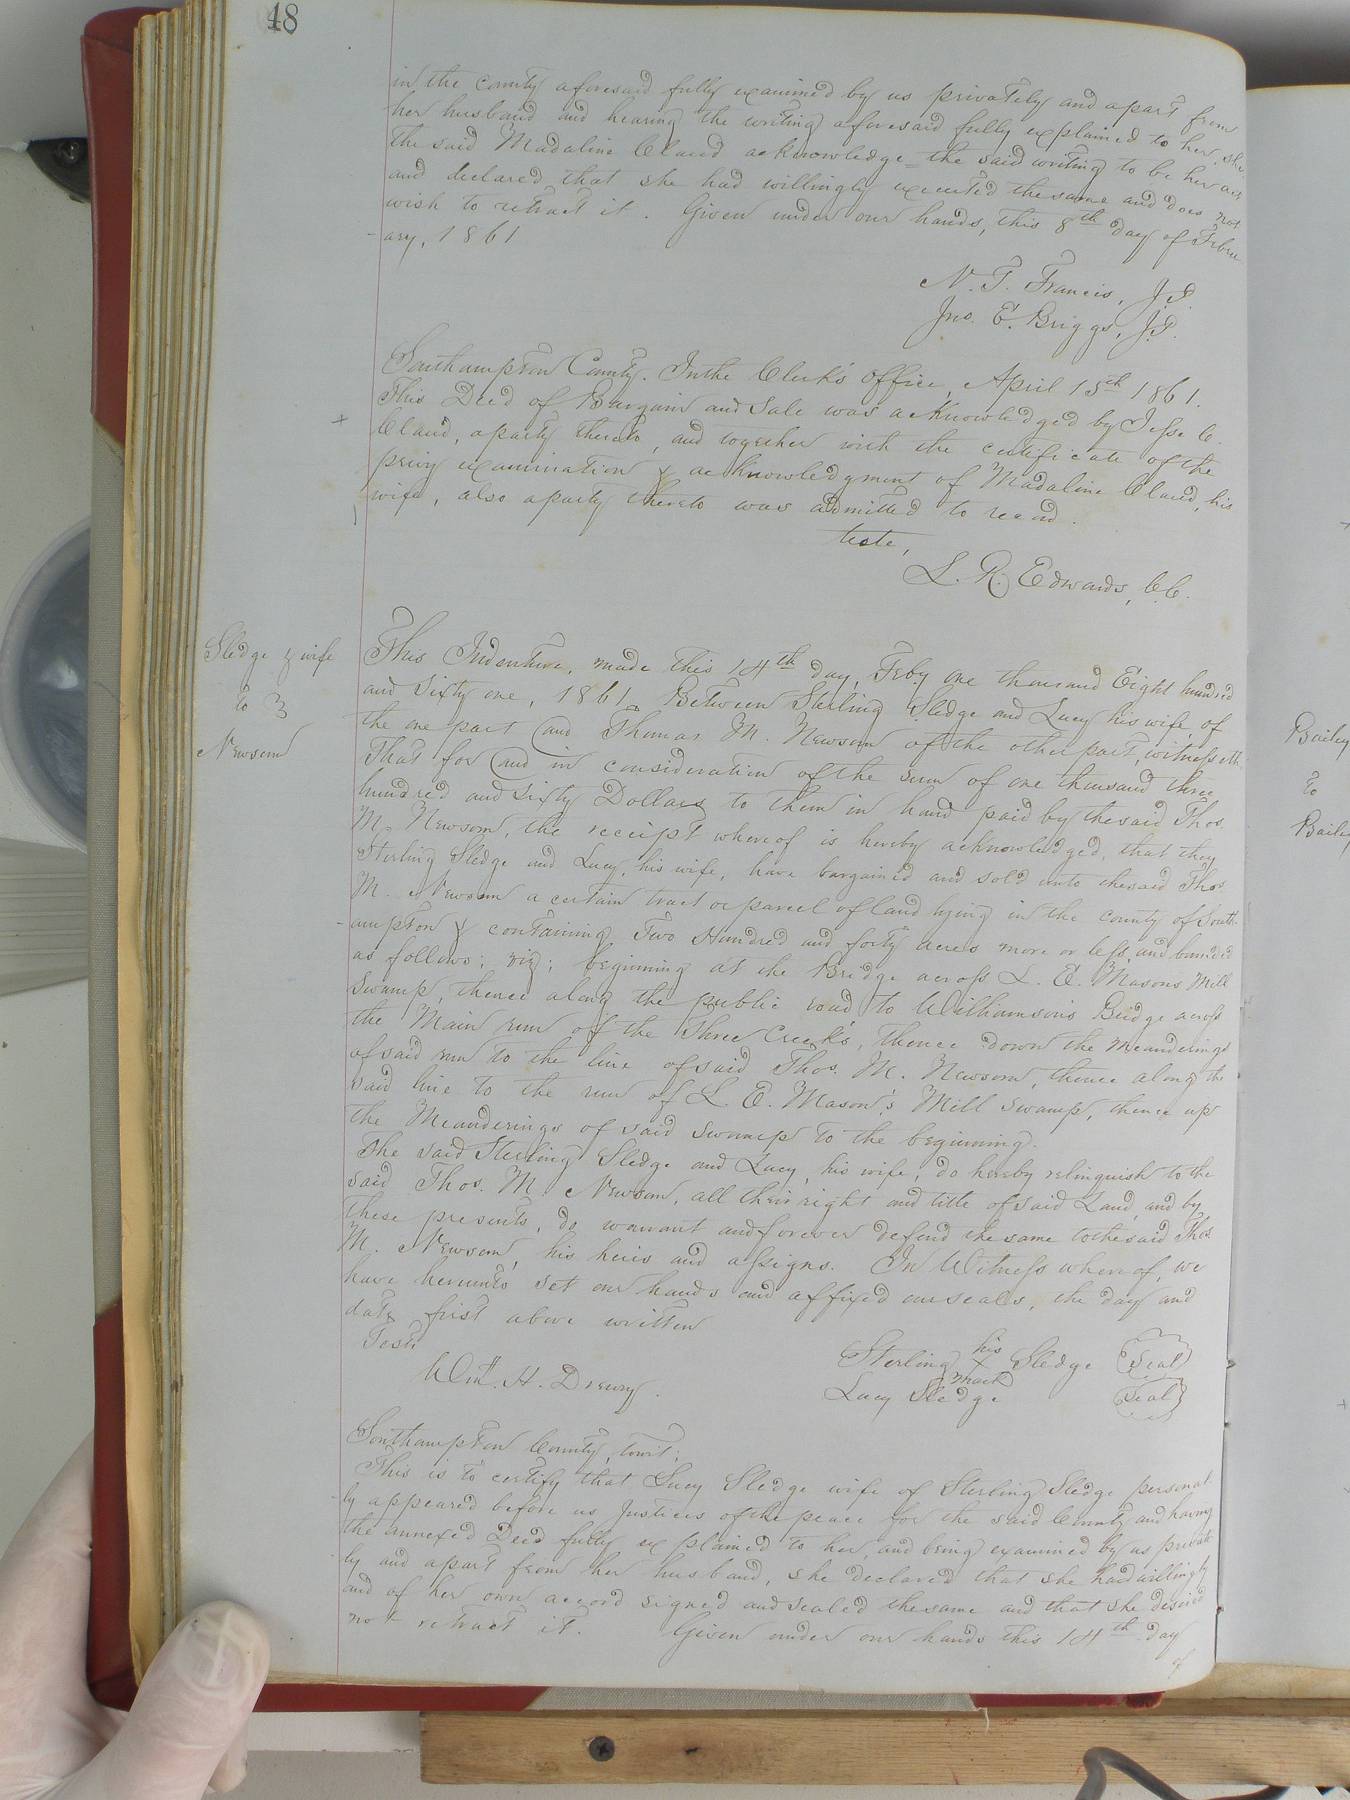 48
in the county aforesaid fully examined by us privately and apart from
her husband and hearing the writing aforesaid fully explained to her, she
the said Madaline Claud acknowledge the said writing to be her act
and declared that she had willingly executed the same and does not
wish to retract it. Given under our hands, this 8th day of Febru
ary, 1861
N. T. Francis, J.P.
Jno. E. Briggs, J.P.
Southampton County. In the Clerk's office, April 15th 1861.
This Deed of Bargain and Sale was acknowledged by Jesse C.
Claud, a party thereto, and together with the certificate of the
privy examination & acknowledgment of Madaline Claud, his
wife, also a party thereto was admitted to record.
teste,
L. R. Edwards, C.C.
Sledge & wife
to
Newsom
This Indenture, made this 14th day, Feby one thousand Eight hundred
and sixty one, 1861, Between Sterling Sledge and Lucy his wife, of
the one part and Thomas M. Newsom of the other part, witnesseth
That for and in consideration of the sum of one thousand three
hundred and sixty Dollars to them in hand paid by the said Thos.
M. Newsom, the receipt whereof is hereby acknowledged, that they
Sterling Sledge and Lucy, his wife, have bargained and sold unto the said Thos.
M. Newsom a certain tract or parcel of land lying in the county of South
ampton & containing Two Hundred and forty acres more or less, and bounded
as follows; viz; beginning at the Bridge across L. E. Masons Mill
Swamp, thence along the public road to Williamson's Bridge across
the Main run of the Three Creek's, thence down the Meanderings
of said run to the line of said Thos. M. Newsom, thence along the
said line to the run of L. E. Mason's Mill Swamp, thence up
the Meanderings of said Swamp to the beginning.
The said Sterling Sledge and Lucy, his wife, do hereby relinquish to the
said Thos. M. Newsom, all their right and title of said Land, and by
these presents, do warrant and forever defend the same to the said Thos.
M. Newsom, his heirs and assigns. In Witness whereof, we
have hereunto set our hands and affixed our seals, the day and
date first above written
Test
Wm. H. Drewry.
his
Sterling X Sledge Seal
mark
Lucy Sledge Seal
Southampton County, towit;
This is to certify that Lucy Sledge wife of Sterling Sledge personal
ly appeared before us Justices of the peace for the said County and having
the annexed Deed fully explained to her, and being examined by us private
ly and apart from her husband, she declared that she had willingly
and of her own accord signed and sealed the same and that she desired
not retract it. Given under our hands this 14th day
of
Bailey
to
Bailey